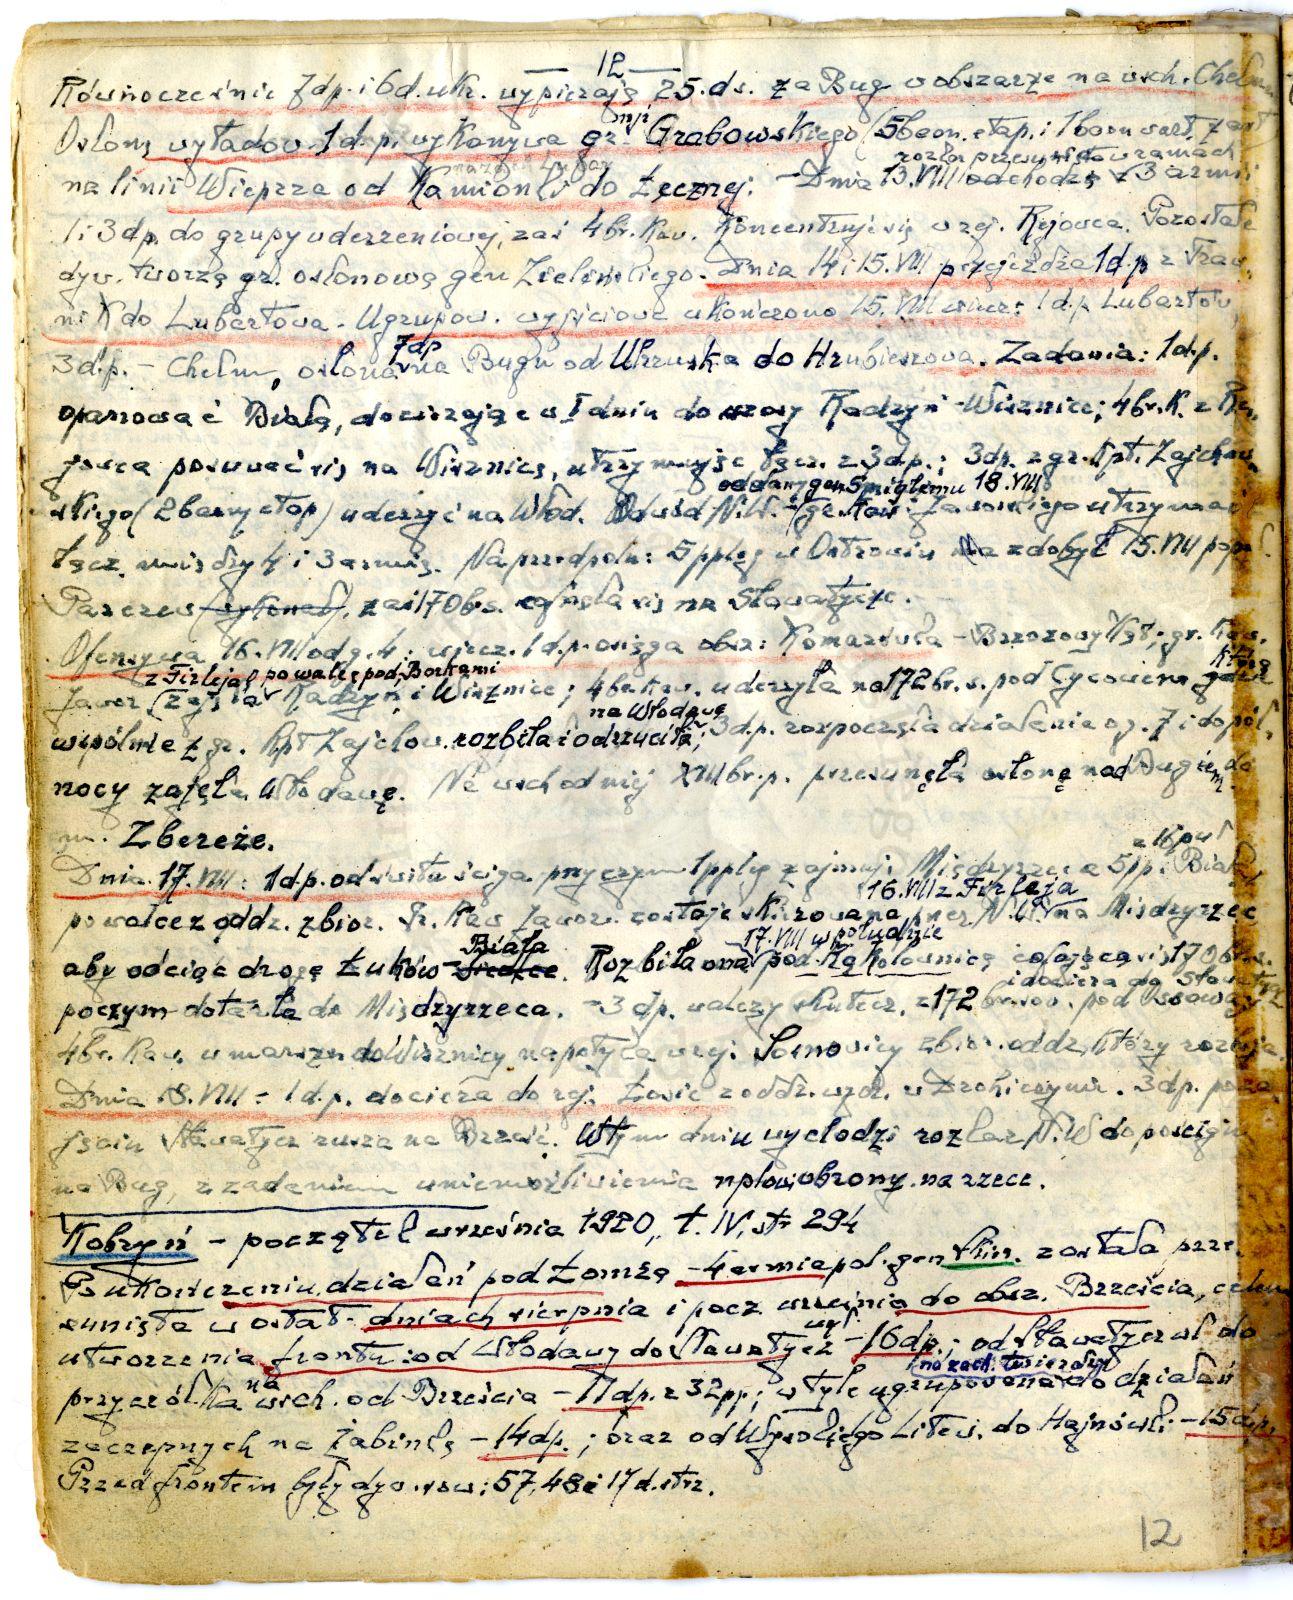 — 12 —
Równocześnie 7dp. i 6d. ukr. wypierają 25. ds. za Bug w obszarze na wsch. Chełm
Osłonę wyładow. 1d.p. wykonywa gr. mjr. Grabowskiego (5 baon. etap. i 1 baon wart.
na linii Wieprza od Kamionki do Łęcznej. – Dnia 13.VIII odchodzą z 3 armii
rozka w ramach
1 i 3dp. do grupy uderzeniowej, zaś 4 br. kaw. koncentruje się w rej. Rejowca. Pozostałe
dyw. tworzą gr. osłonową gen Zielińskiego. Dnia 14 i 15.VIII przejeżdża 1d.p z Traw.
nik do Lubartowa. Ugrupow. wyjściowe ukończono 15.VIII wiecz: 1d.p Lubartów,
3d.p. – Chełm, osłona 7dp na Bugu od Uhruska do Hrubieszowa. Zadania: 1d.p.
opanować Białą, docierając w I dniu do szosy Radzyń – Wisznice; 4 br. K. z Rej.
jowca posuwać się na Wisznice, utrzymując łącz. z 3dp.; 3dp. z gr. kpt. Zajchow.
skiego (2 baony etap) uderzyć na Włod. Odwód N.W. – gr. kaw. Jaworskiego utrzymać
oddany gen Śmigłemu 18.VIII
łącz. między 4 i 3 armią. Na przedpolu: 5 ppleg w Ostrowiu zdobył 15.VIII popoł.
Parczew, zaś 170 b.s. cofnęła się na Sławatycze.
Ofensywa 16.VIII od g. 4: wiecz. 1d.p. osiąga obsz: Komarówka – Brzozowy Kąt; gr. kaw.
Jawor. z Firleja zajęła po walce pod Borkami Radzyń i Wisznice; 4 br. kaw. uderzyła na 172 br. s. pod Cycowem którą
wspólnie z gr. kpt Zajchow. rozbiła i odrzuciła na Włodawę; 3d.p. rozpoczęła działania o g. 7 i do pół.
nocy zajęła Włodawę. Na wschodniej XIII br. p. przesunęła osłonę nad Bugiem do
m. Zbereże.
Dnia 17.VIII: 1d.p. od świtu ściga przyczym 1 ppleg zajmuje Międzyrzec a 5 pp. Białą
po walce z oddz. zbior. Gr. kaw Jawor. zostaje skierowana przez N.W. 16.VIII z Firleja na Międzyrzec
aby odciąć drogę Łuków – Biała. Rozbiła ona 17.VIII w południe pod Kąkolownicą cofającą się 170 br. s.
poczym dotarła do Międzyrzeca. – 3dp. walczy skutecz. z 172 br. sow. pod Ossową i dociera do Sławatycz
4 br. kaw. w marszu do Wisznicy napotyka w rej. Sosnowicy zbior. oddz, który rozbija.
Dnia 18.VIII – 1d.p. dociera do rej. Łosic z oddz. wydz. w Drohiczynie. 3d.p. po za
jęciu Sławatycz rusza na Brześć. W tym dniu wychodzi rozkaz N.W do pościgu
na Bug, z zadaniem uniemożliwienia nplowi obrony na rzece.
Kobryń – początek września 1920, t. IV, str 294
Po ukończeniu działań pod Łomżą – 4 armia pol. gen Skier. została prze.
sunięta w ostat. dniach sierpnia i pocz września do obsz. Brześcia, celem
utworzenia frontu: od Włodawy do Sławatycz wył. – 16dp.; od Sławatycz wł do
przyczółka na wsch. od Brześcia – 11dp. z 32pp; w tyle ugrupowana (na zach. twierdzy) do działań
zaczepnych na Żabinkę – 14dp.; oraz od Wysokiego Litew. do Hajnówki – 15dp.
Przed frontem były dyw. sow: 57, 48 i 17 d. strz.
12